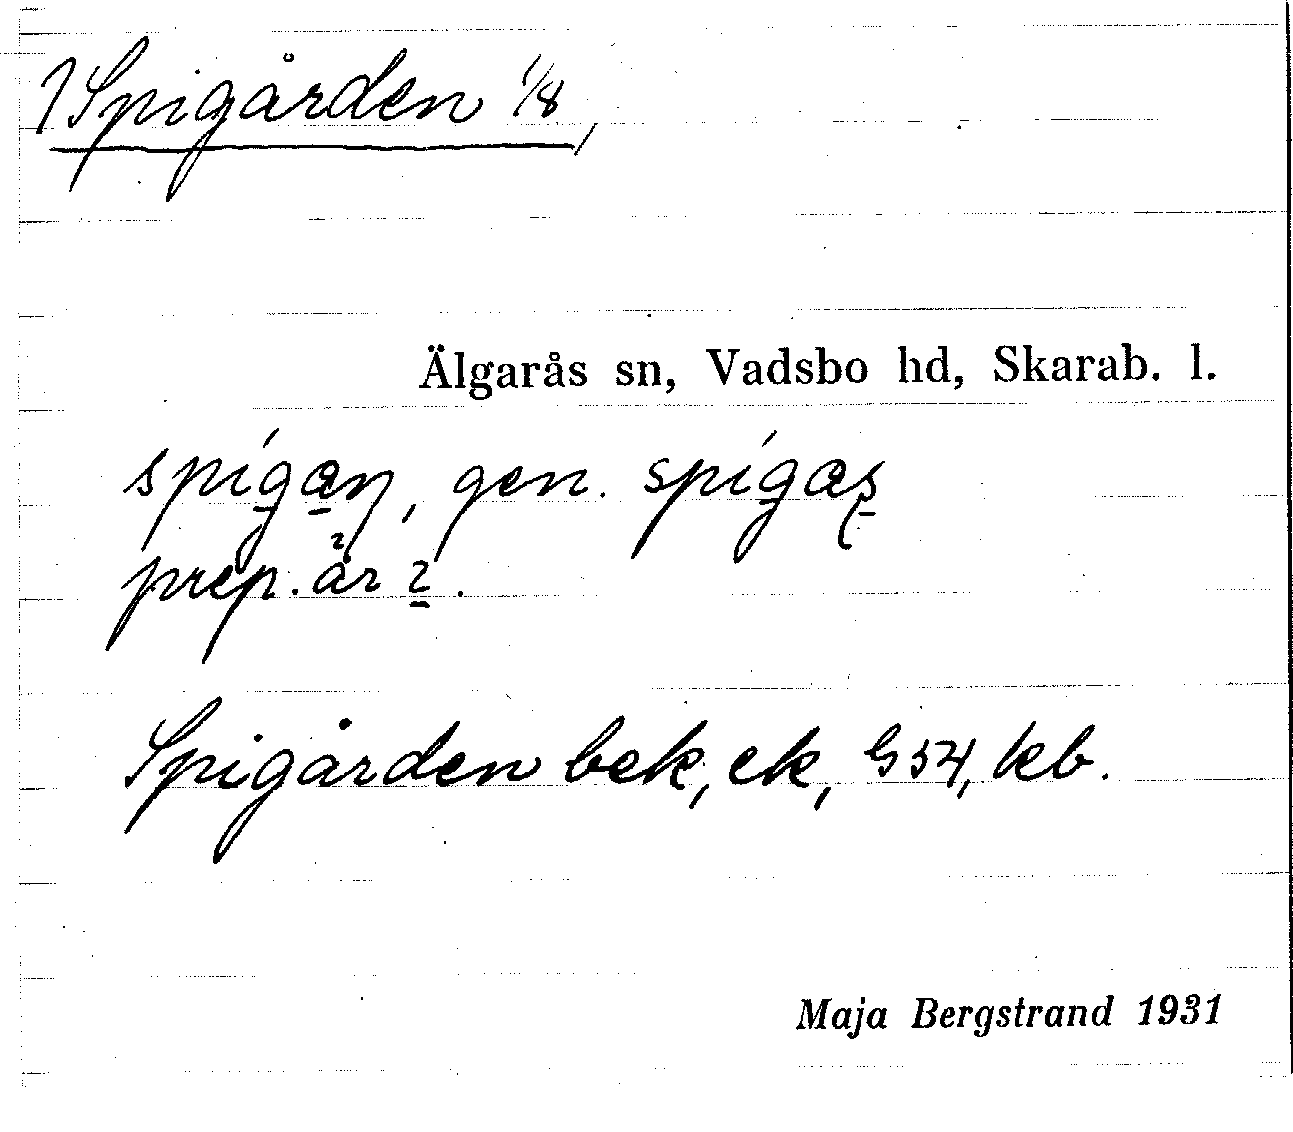 Spigården 1/8,
Älgarås sn, Vadsbo hd, Skarab. l.
spígæn, gen. spígæs
prep. år 2.
Spigården bek, ek, G 54, kb.
Maja Bergstrand 1931